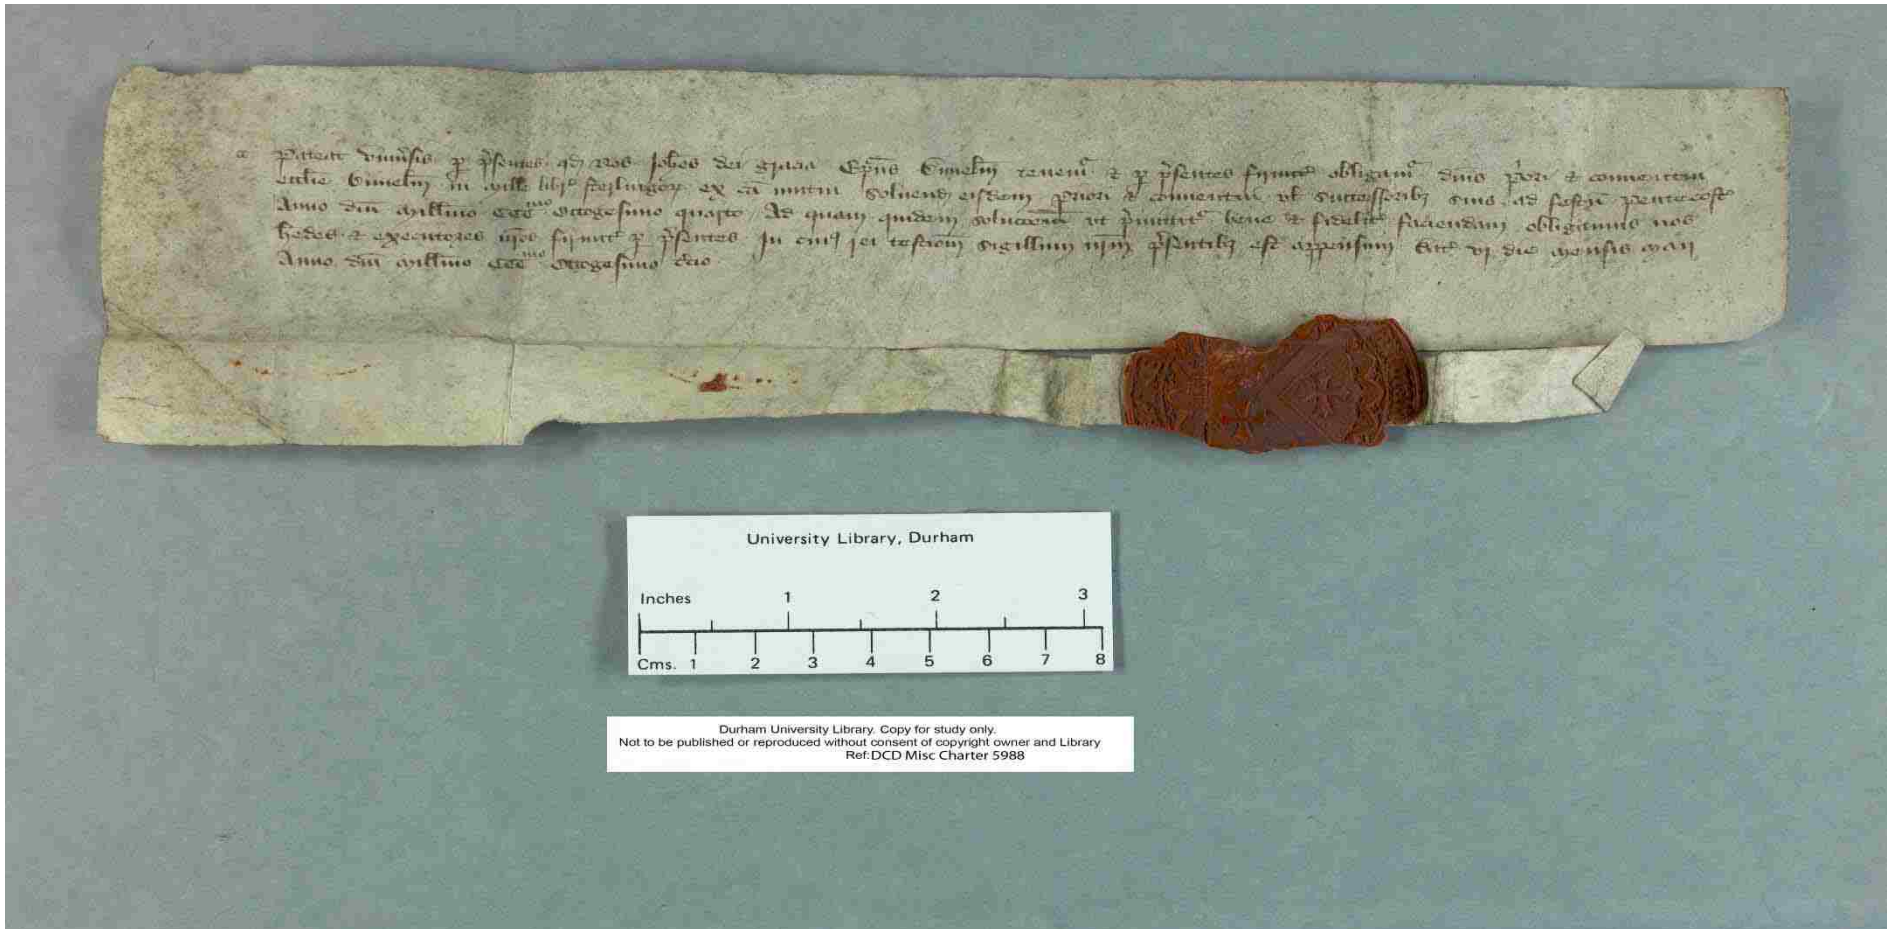 Pateat univ͛sis p̲ p͛sentes qd̛ nos Joħes dei gracia Ep̅us Dunelm̅ tenem͛ & p̲ p͛sentes firmit͛ obligam͛ dn̅is p͛ori & conventui
eccl̅ie Dunelm̅ in mille libr͛ sterlingoꝝ ex ca̅ mutui solvend̛ eisdem priori & conventui vl̛ successorib̛ suis ad festu̅ pentecost͛
Anno dn̅i Millm̅o CCC̅ᵐᵒ Octogesimo quarto Ad quam quidem soluco̅em ut p͛mittit͛ bene & fidelit͛ faciendam obligamus nos
hedes & executores nr̅os firmit͛ p̲ p͛sentes In cui͛ rei testio̅m sigillum nr̅m p͛sentib̛ est appensum Dat͛ vi die mensis Maii
Anno dn̅i Millm̅o CCC̅ᵐᵒ Octogesimo t͛cio
University Library, Durham
Inches 1 2 3
Cms. 1 2 3 4 5 6 7 8
Durham University Library. Copy for study only.
Not to be published or reproduced without consent of copyright owner and Library
Ref:DCD Misc Charter 5988